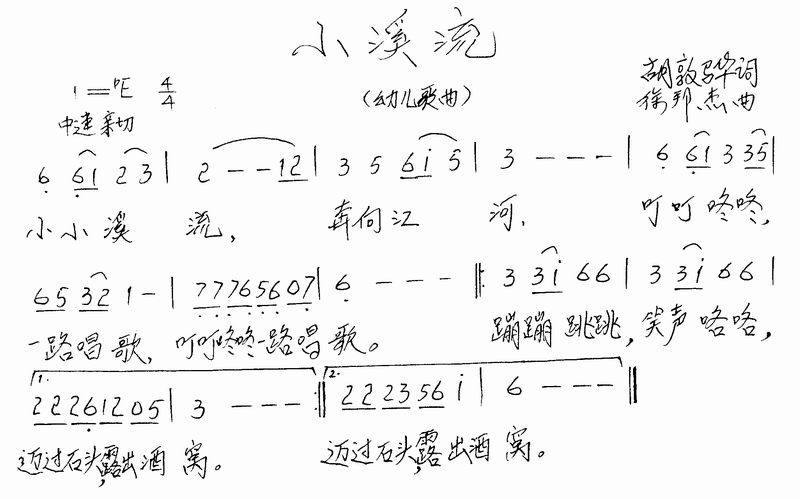 小溪流
1=ᵇE 4/4
（幼儿歌曲）
胡敦骅词
中速 亲切
徐邦杰曲
6 61 2 3 | 2 - - 12 | 3 5 6i 5 | 3 - - - | 6 61 3 35 |
小小溪 流， 奔向江 河， 叮叮咚咚，
65 32 1 - | 7776 56 07 | 6 - - - ‖: 3 3i 66 | 3 3i 66 |
一路唱歌，叮叮咚咚一路唱歌。 蹦蹦跳跳，笑声咯咯，
1. 2226 12 05 | 3 - - - :‖ 2. 222356 i | 6 - - - ‖
迈过石头，露出酒窝。 迈过石头，露出酒窝。